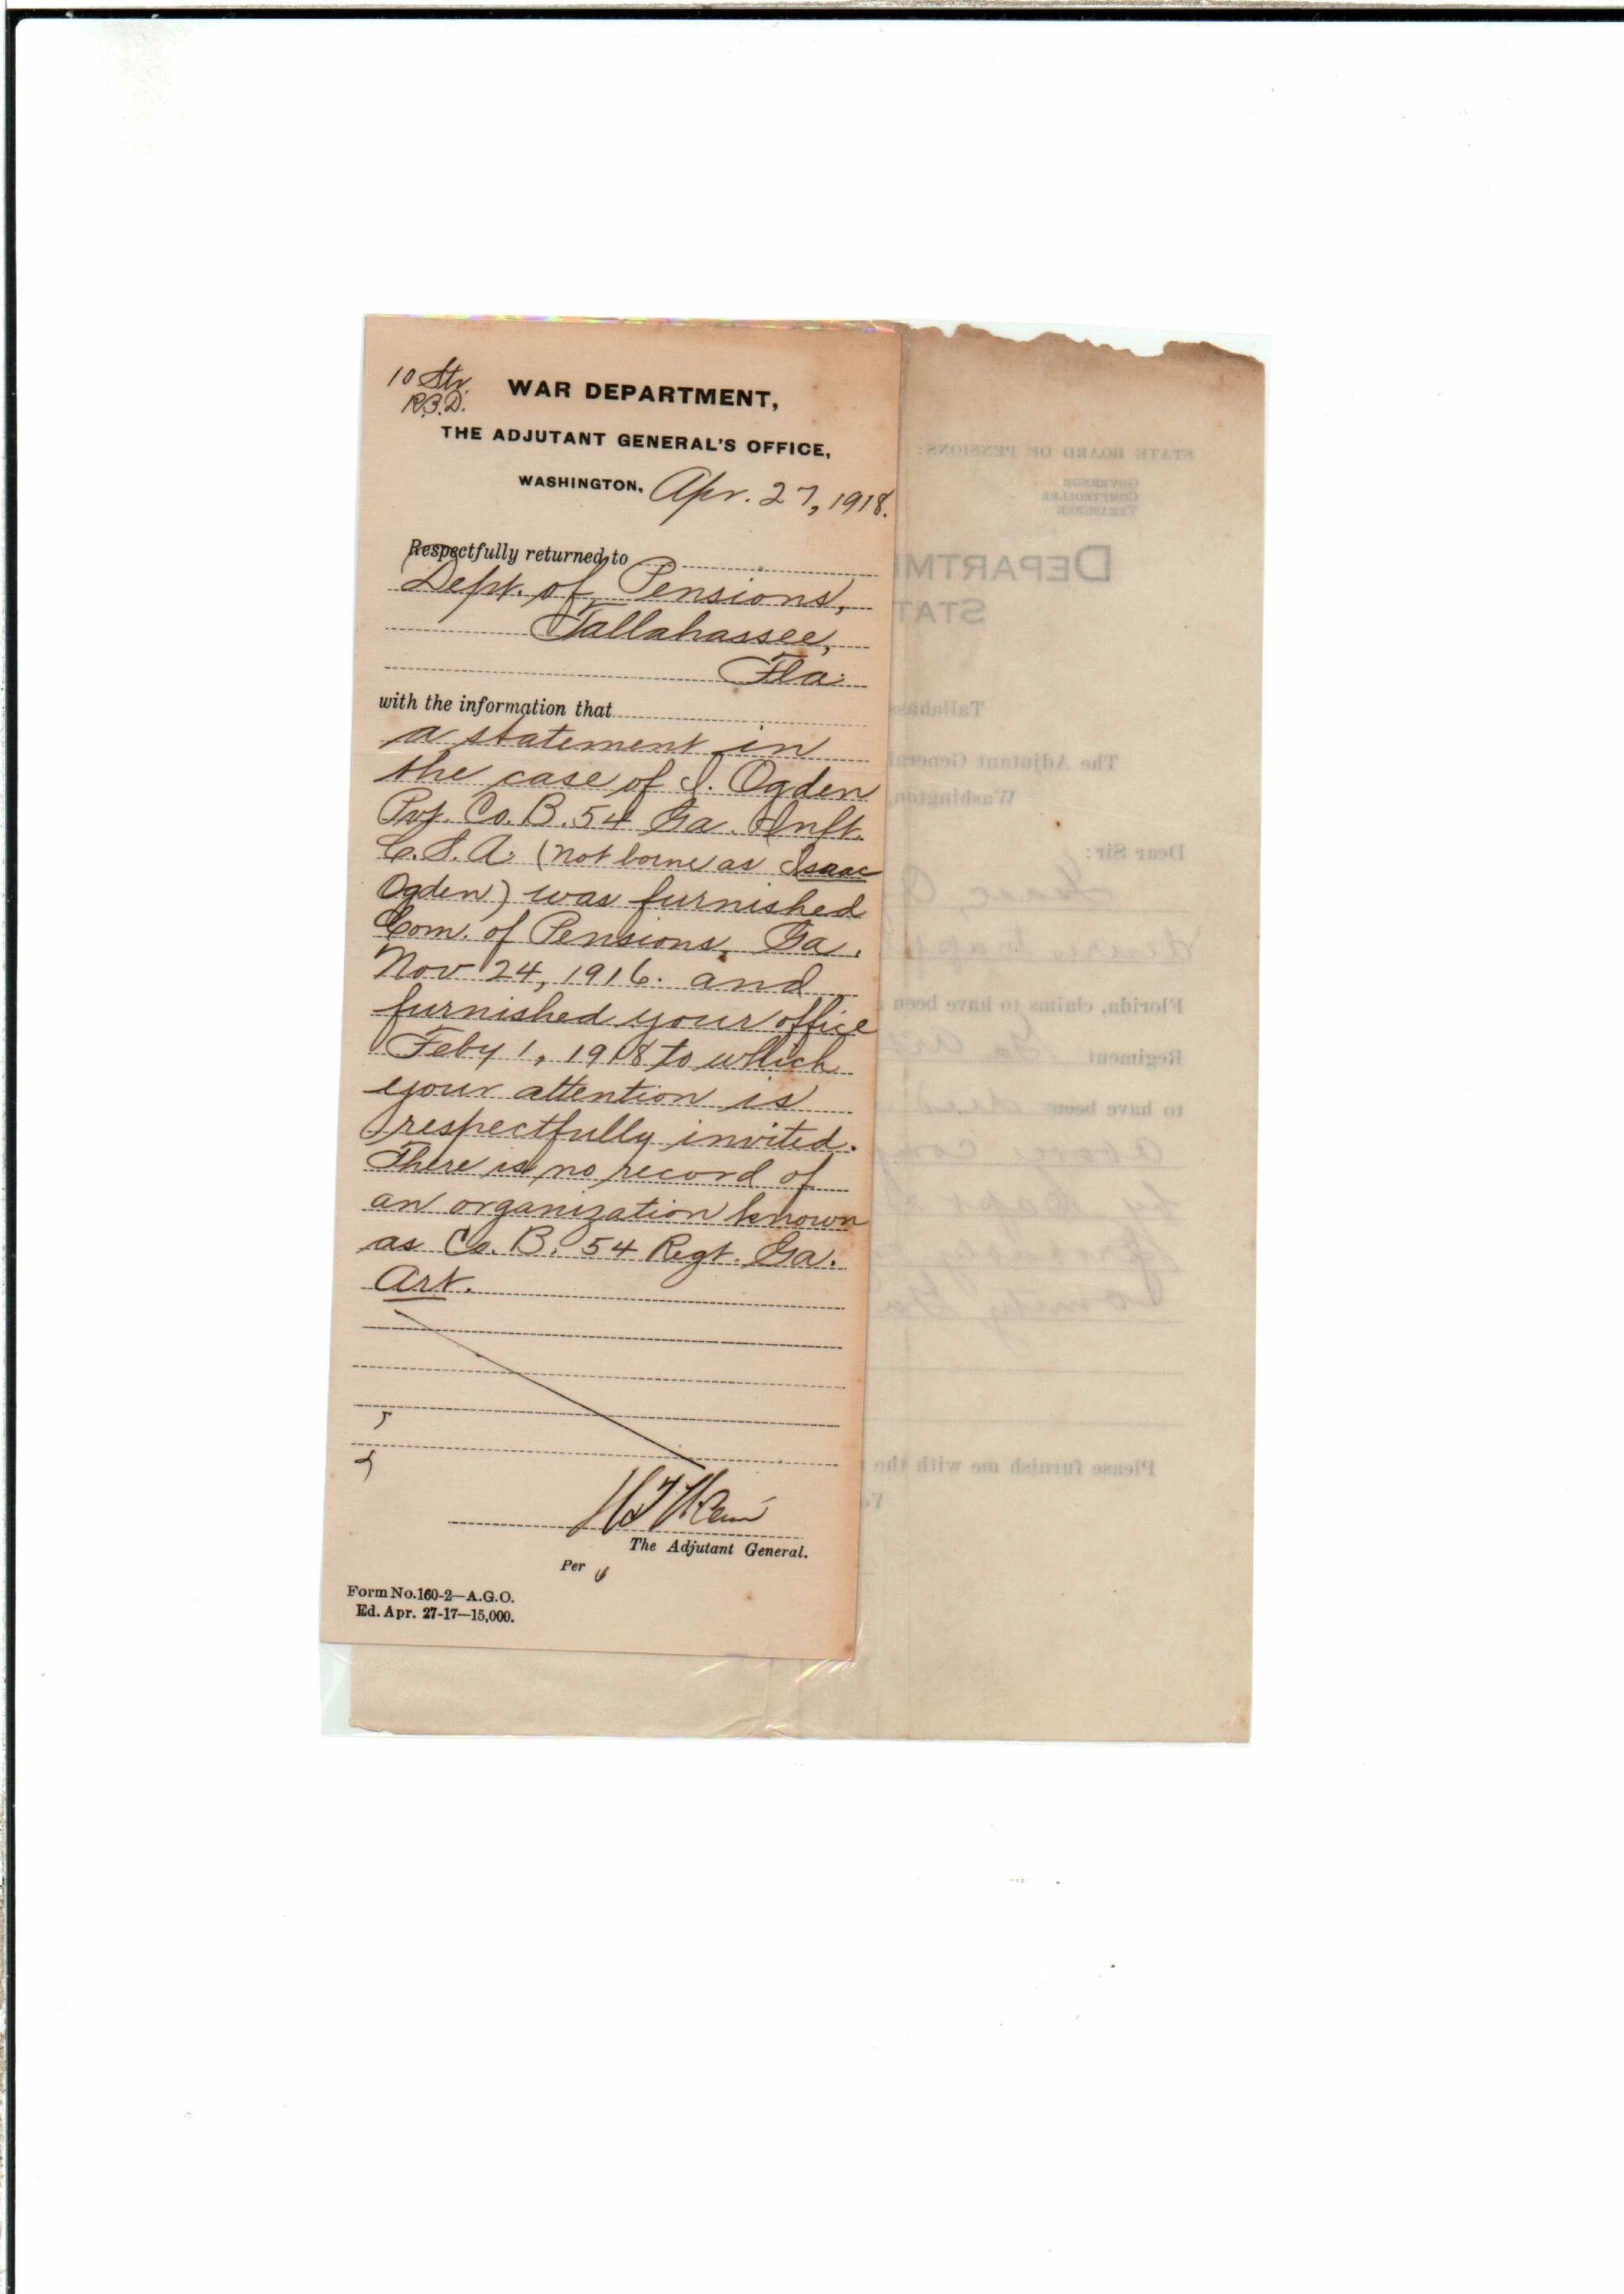 10 Str.
R.B.D.
WAR DEPARTMENT,
THE ADJUTANT GENERAL'S OFFICE,
WASHINGTON, Apr. 27, 1918.
Respectfully returned to
Dept. of Pensions,
Tallahassee,
Fla.
with the information that
a statement in
the case of I. Ogden
Pvt. Co. B. 54 Ga. Inft.
C.S.A. (not borne as Isaac
Ogden) was furnished
Com. of Pensions, Ga.
Nov 24, 1916. and
furnished your office
Feby 1, 1918 to which
your attention is
respectfully invited.
There is no record of
an organization known
as Co. B. 54 Regt. Ga.
Art.
The Adjutant General.
Per
Form No. 160-2—A.G.O.
Ed. Apr. 27-17—15,000.
STATE BOARD OF PENSIONS:
GOVERNOR
COMPTROLLER
TREASURER
DEPARTM
STAT
Tallahass
The Adjutant General
Washington,
Dear Sir:
Isaac O
desires
Florida, claims to have been
Regiment Ga Art
to have been
above com
by Capt
County Ga
Please furnish me with the